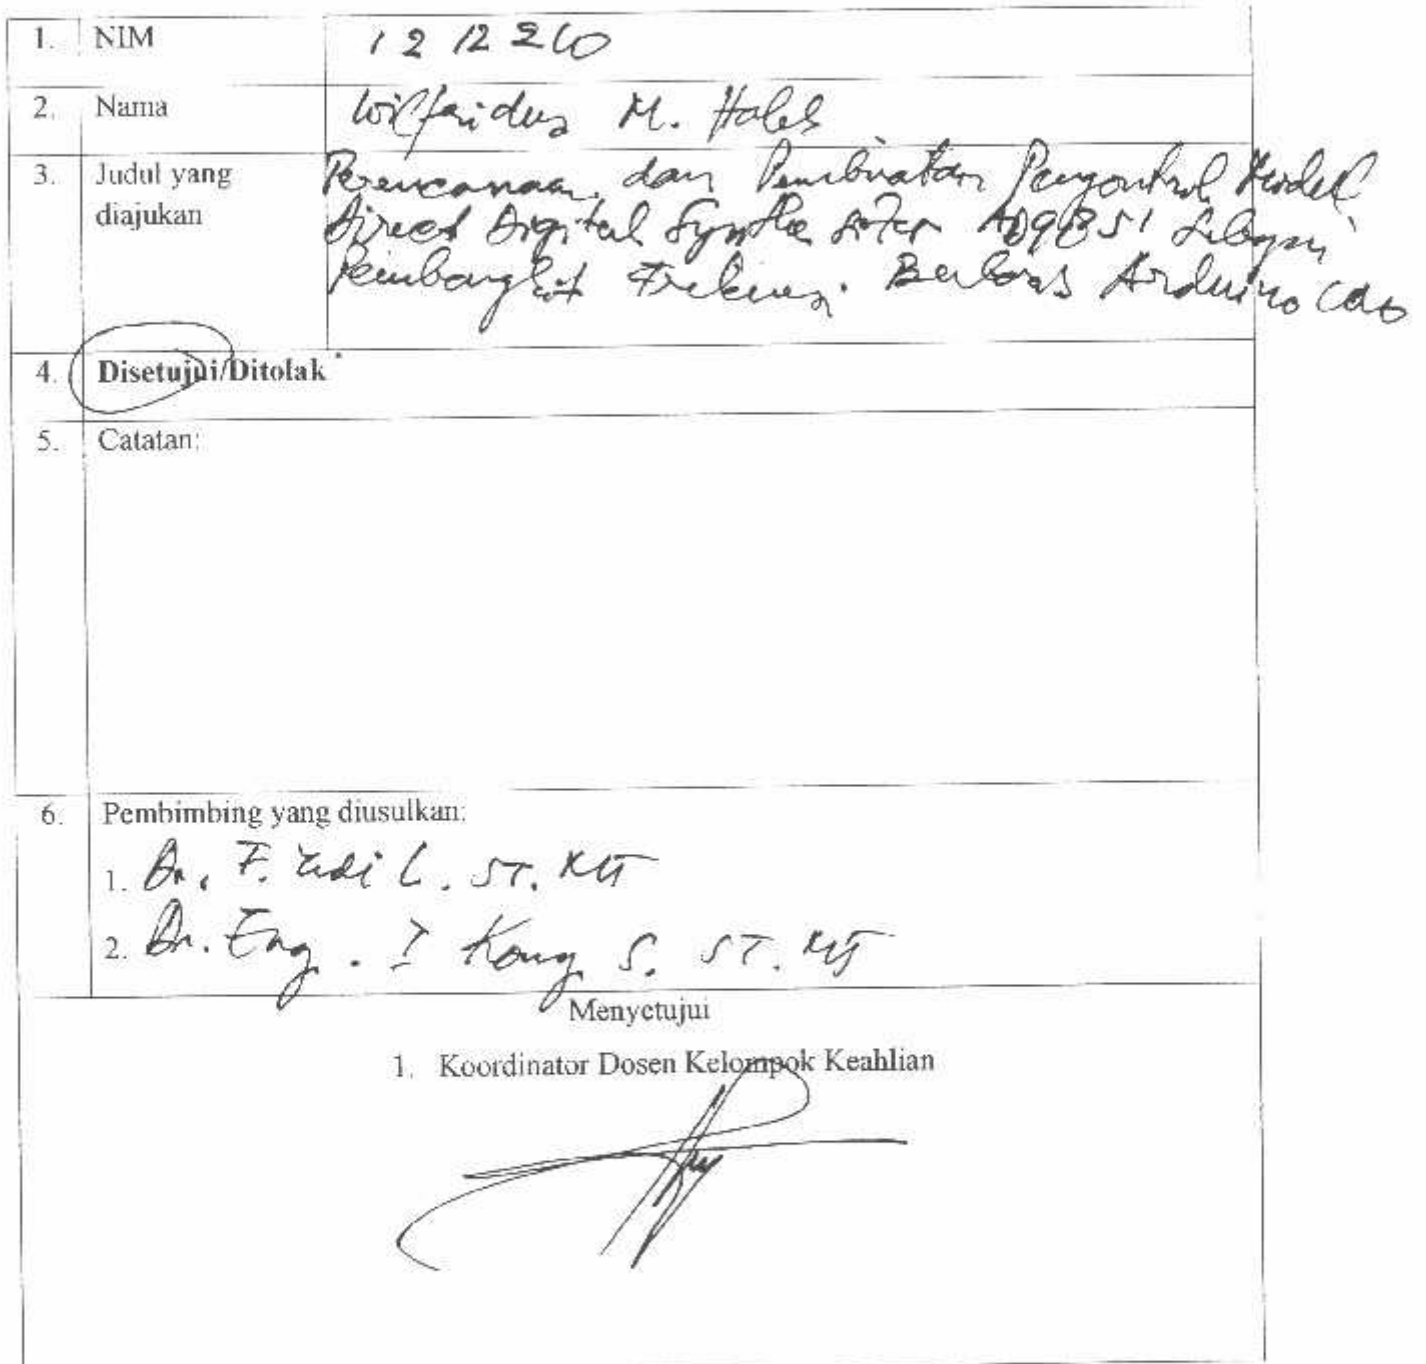 1. NIM 12 12 260
2. Nama Wilfridus M. Halek
3. Judul yang diajukan Perencanaan dan Pembuatan Pengontrol Model
Direct Digital Synthesizer AD9851 Sebagai
Pembangkit Frekuensi Berbasis Arduino
4. Disetujui/Ditolak*
5. Catatan:
6. Pembimbing yang diusulkan:
1. Dr. F. Yudi L. ST. MT
2. Dr. Eng. I Kong S. ST. MT
Menyetujui
1. Koordinator Dosen Kelompok Keahlian